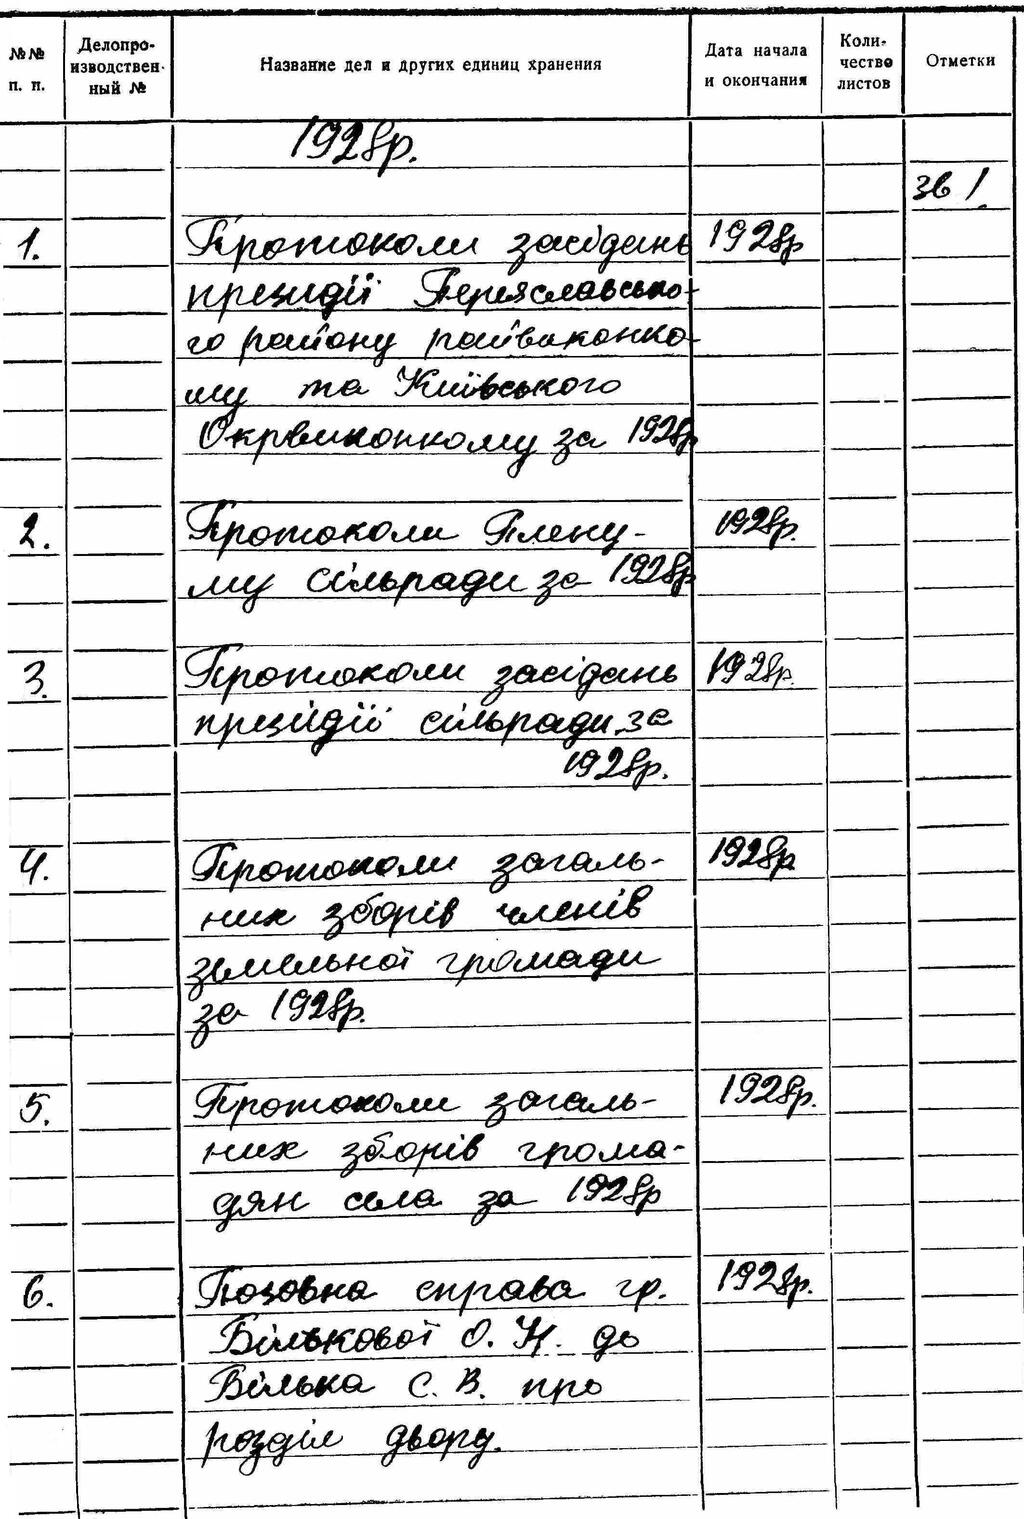 №№ п. п. | Делопро-изводствен-ный № | Название дел и других единиц хранения | Дата начала и окончания | Коли-чество листов | Отметки
1928р.
зв 1.
1. Протоколи засідань 1928р
президії Переяславсько-
го району райвиконко-
му та Київського
Окрвиконкому за 1928р
2. Протоколи Плену- 1928р.
му сільради за 1928р
3. Протоколи засідань 1928р.
президії сільради за
1928р.
4. Протоколи загаль- 1928р
них зборів членів
земельної громади
за 1928р.
5. Протоколи загаль- 1928р.
них зборів грома-
дян села за 1928р
6. Позовна справа гр. 1928р.
Бількової О. Н. до
Білька С. В. про
розділ двору.